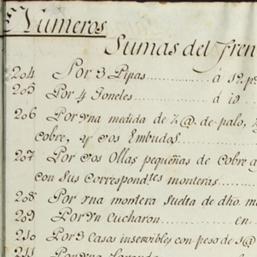 Numeros
Sumas del Fren
204 Por 3 Pipas............ á 12 p
205 Por 4 Toneles............ á 10
206 Por vna medida de ½ @. de palo,
Cobre, y dos Embudos
207 Por dos Ollas pequeñas de Cobre
con sus Correspondtes monteras
208 Por vna montera suelta de dho. m
209 Por vn Cucharon ........ en
210 Por 3 Casos inservibles con peso de 3@
211 Por vna